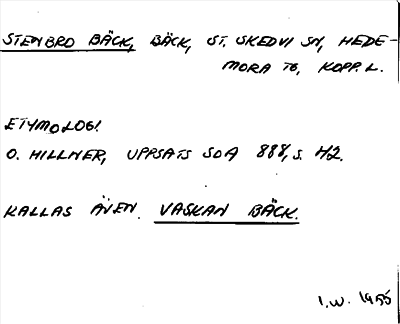 STENBRO BÄCK, BÄCK, ST. SKEDVI SN, HEDE-
MORA TG, KOPP. L.
ETYMOLOGI.
O. HILLNER, UPPSATS SOA 888, S. 42.
KALLAS ÄVEN. VASKAN BÄCK.
I.W. 1955